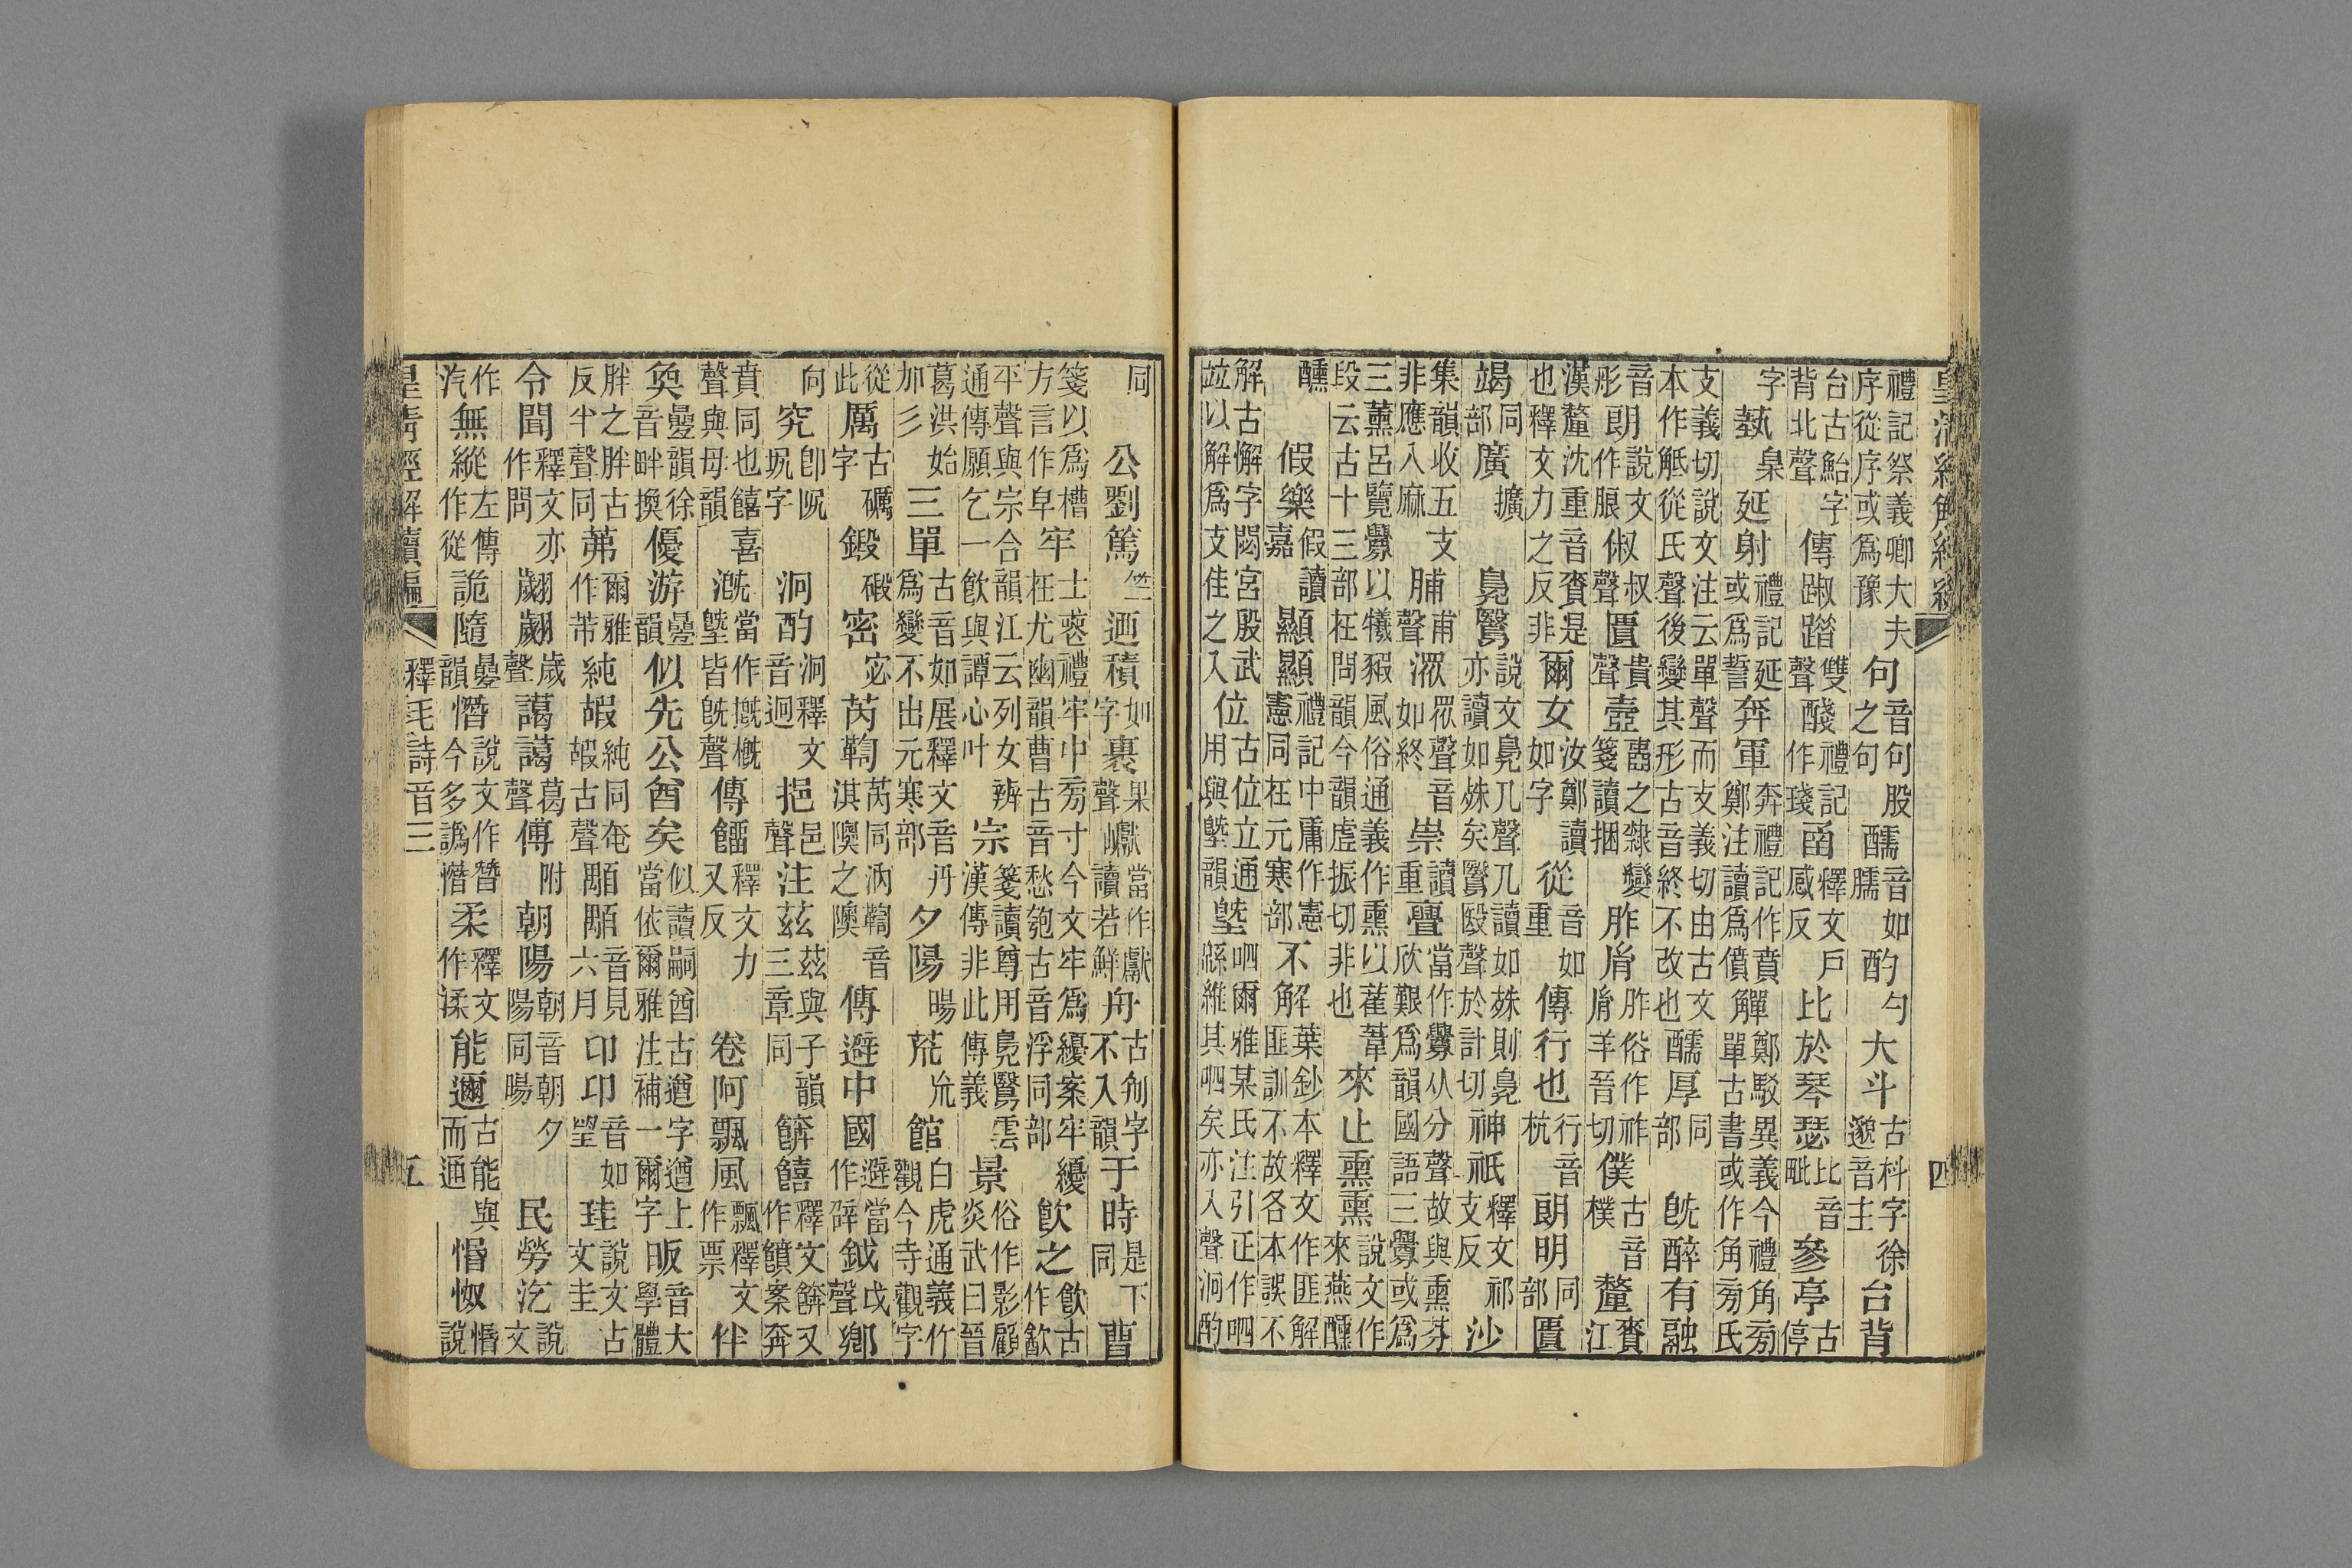 皇清經解續編
四
禮記祭義卿大夫序從序或爲豫句音句股之句醹音如臑酌勺大斗古枓字徐邈音主台背
台古鮐字背北聲傳踧踖雙聲醆禮記作琖㽅釋文戶感反比於琴瑟比音毗參亭古停
字埶臬延射禮記延或爲誓奔軍奔禮記作賁鄭注讀爲僨觶鄭駮異義今禮角旁單古書或作角旁氏
支義切說文注云單聲而支義切由古文本作觝從氏聲後變其形古音終不改也醹厚同部旣醉有融
音彤朗說文作朖俶叔聲匱貴聲壼之隸變箋讀捆胙胤胙俗作祚胤羊晉切僕古音樸釐賚江
漢釐沈重音賚是也釋文力之反非爾女汝鄭讀如字從音如重傳行也行音杭朗明同部匱
竭同部廣擴鳧鷖說文鳧几聲几讀如殊則鳧亦讀如姝矣鷖殹聲於計切神祇釋文祁支反沙
集韻收五支非應入麻脯甫聲潀眾聲音如終崇讀重亹當作釁从分聲故與熏芬欣艱爲韻國語三釁或爲
三薰呂覽釁以犧豭風俗通義作熏以萑葦段云古十三部在問韻今韻虛振切非也來止熏熏說文作來燕醺
醺假樂假讀嘉顯顯禮記中庸作憲憲同在元寒部不解葉鈔本釋文作匪解匪訓不故各本誤不
解古懈字閟宮殷武竝以解爲支佳之入位古位立通用與塈韻塈呬爾雅某氏注引正作呬緜維其呬矣亦入聲泂酌
同公劉篤竺迺積如字裹果聲巘當作甗讀若鮮舟古匊字不入韻于時是下同曹
箋以爲槽方言作皁牢士喪禮牢中旁寸今文牢爲纋案牢纋在尤幽韻曹古音愁匏古音浮同部飮之飮古作㱃
平聲與宗合韻江云列女辨通傳願乞一飮與譚心叶宗箋讀尊用鳧鷖雲漢傳非此傳義景俗作影顧炎武曰晉
葛洪始加彡三單古音如展釋文音丹爲變不出元寒部夕陽暘荒㐬館白虎通義竹觀今寺觀字
從此厲古字礪鍛碫密宓芮鞫芮同汭鞫音淇隩之隩傳避中國避當作辟鉞戉聲鄕
向究卽阮坭字泂酌泂釋文音迥挹邑聲注茲茲與子韻三章同餴饎釋文餴又作饙案奔
賁同也饎喜聲與母韻溉當作摡槪塈皆旣聲傳餾釋文力又反卷阿飄風飄釋文作票伴
奐疊韻徐音畔換優游疊韻似先公酋矣似讀嗣酋古遒字遒上當依爾雅注補一爾字昄音大學體
胖之胖古反半聲同茀爾雅作芾純嘏純同奄嘏古聲顒顒音見六月卬卬音如望珪說文古文圭
令聞釋文亦作問翽翽歲聲藹藹葛聲傅附朝陽朝音朝夕陽同暘民勞汔說文
作汽無縱左傳作從詭隨疊韻憯說文作朁今多譌憯柔釋文作渘能邇古能與而通惛怓惛說
皇清經解續編
釋毛詩音三
五